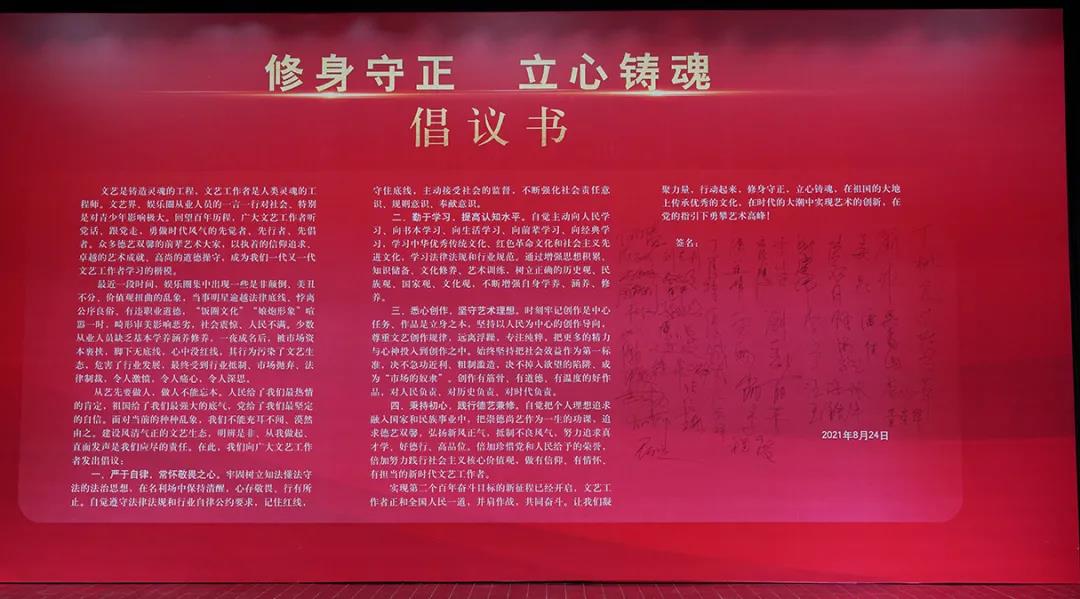 修身守正 立心铸魂
倡议书
文艺是铸造灵魂的工程，文艺工作者是人类灵魂的工
程师。文艺界、娱乐圈从业人员的一言一行对社会、特别
是对青少年影响极大。回望百年历程，广大文艺工作者听
党话、跟党走，勇做时代风气的先觉者、先行者、先倡
者。众多德艺双馨的前辈艺术大家，以执着的信仰追求、
卓越的艺术成就、高尚的道德操守，成为我们一代又一代
文艺工作者学习的楷模。
最近一段时间，娱乐圈集中出现一些是非颠倒、美丑
不分、价值观扭曲的乱象，当事明星逾越法律底线、悖离
公序良俗、有违职业道德，“饭圈文化”“娘炮形象”喧
嚣一时，畸形审美影响恶劣，社会震惊、人民不满。少数
从业人员缺乏基本学养涵养修养，一夜成名后，被市场资
本裹挟，脚下无底线，心中没红线，其行为污染了文艺生
态，危害了行业发展，最终受到行业抵制、市场抛弃、法
律制裁，令人激愤，令人痛心，令人深思。
从艺先要做人，做人不能忘本。人民给了我们最热情
的肯定，祖国给了我们最强大的底气，党给了我们最坚定
的自信。面对当前的种种乱象，我们不能充耳不闻、漠然
由之。建设风清气正的文艺生态，明辨是非、从我做起、
直面发声是我们应尽的责任。在此，我们向广大文艺工作
者发出倡议：
一、严于自律，常怀敬畏之心。牢固树立知法懂法守
法的法治思想，在名利场中保持清醒，心存敬畏、行有所
止。自觉遵守法律法规和行业自律公约要求，记住红线，
守住底线，主动接受社会的监督，不断强化社会责任意
识、规则意识、奉献意识。
二、勤于学习，提高认知水平。自觉主动向人民学
习、向书本学习、向生活学习、向前辈学习、向经典学
习，学习中华优秀传统文化、红色革命文化和社会主义先
进文化，学习法律法规和行业规范。通过增强思想积累、
知识储备、文化修养、艺术训练，树立正确的历史观、民
族观、国家观、文化观，不断增强自身学养、涵养、修
养。
三、悉心创作，坚守艺术理想。时刻牢记创作是中心
任务、作品是立身之本，坚持以人民为中心的创作导向，
尊重文艺创作规律，远离浮躁，专注纯粹，把更多的精力
与心神投入到创作之中。始终坚持把社会效益作为第一标
准，决不急功近利、粗制滥造，决不掉入欲望的陷阱、成
为“市场的奴隶”。创作有筋骨、有道德、有温度的好作
品，对人民负责、对历史负责、对时代负责。
四、秉持初心，践行德艺兼修。自觉把个人理想追求
融入国家和民族事业中，把崇德尚艺作为一生的功课，追
求德艺双馨，弘扬新风正气，抵制不良风气，努力追求真
才学、好德行、高品位。倍加珍惜党和人民给予的荣誉，
倍加努力践行社会主义核心价值观，做有信仰、有情怀、
有担当的新时代文艺工作者。
实现第二个百年奋斗目标的新征程已经开启，文艺工
作者正和全国人民一道，并肩作战，共同奋斗。让我们凝
聚力量，行动起来，修身守正，立心铸魂，在祖国的大地
上传承优秀的文化，在时代的大潮中实现艺术的创新，在
党的指引下勇攀艺术高峰！
签名：
2021年8月24日